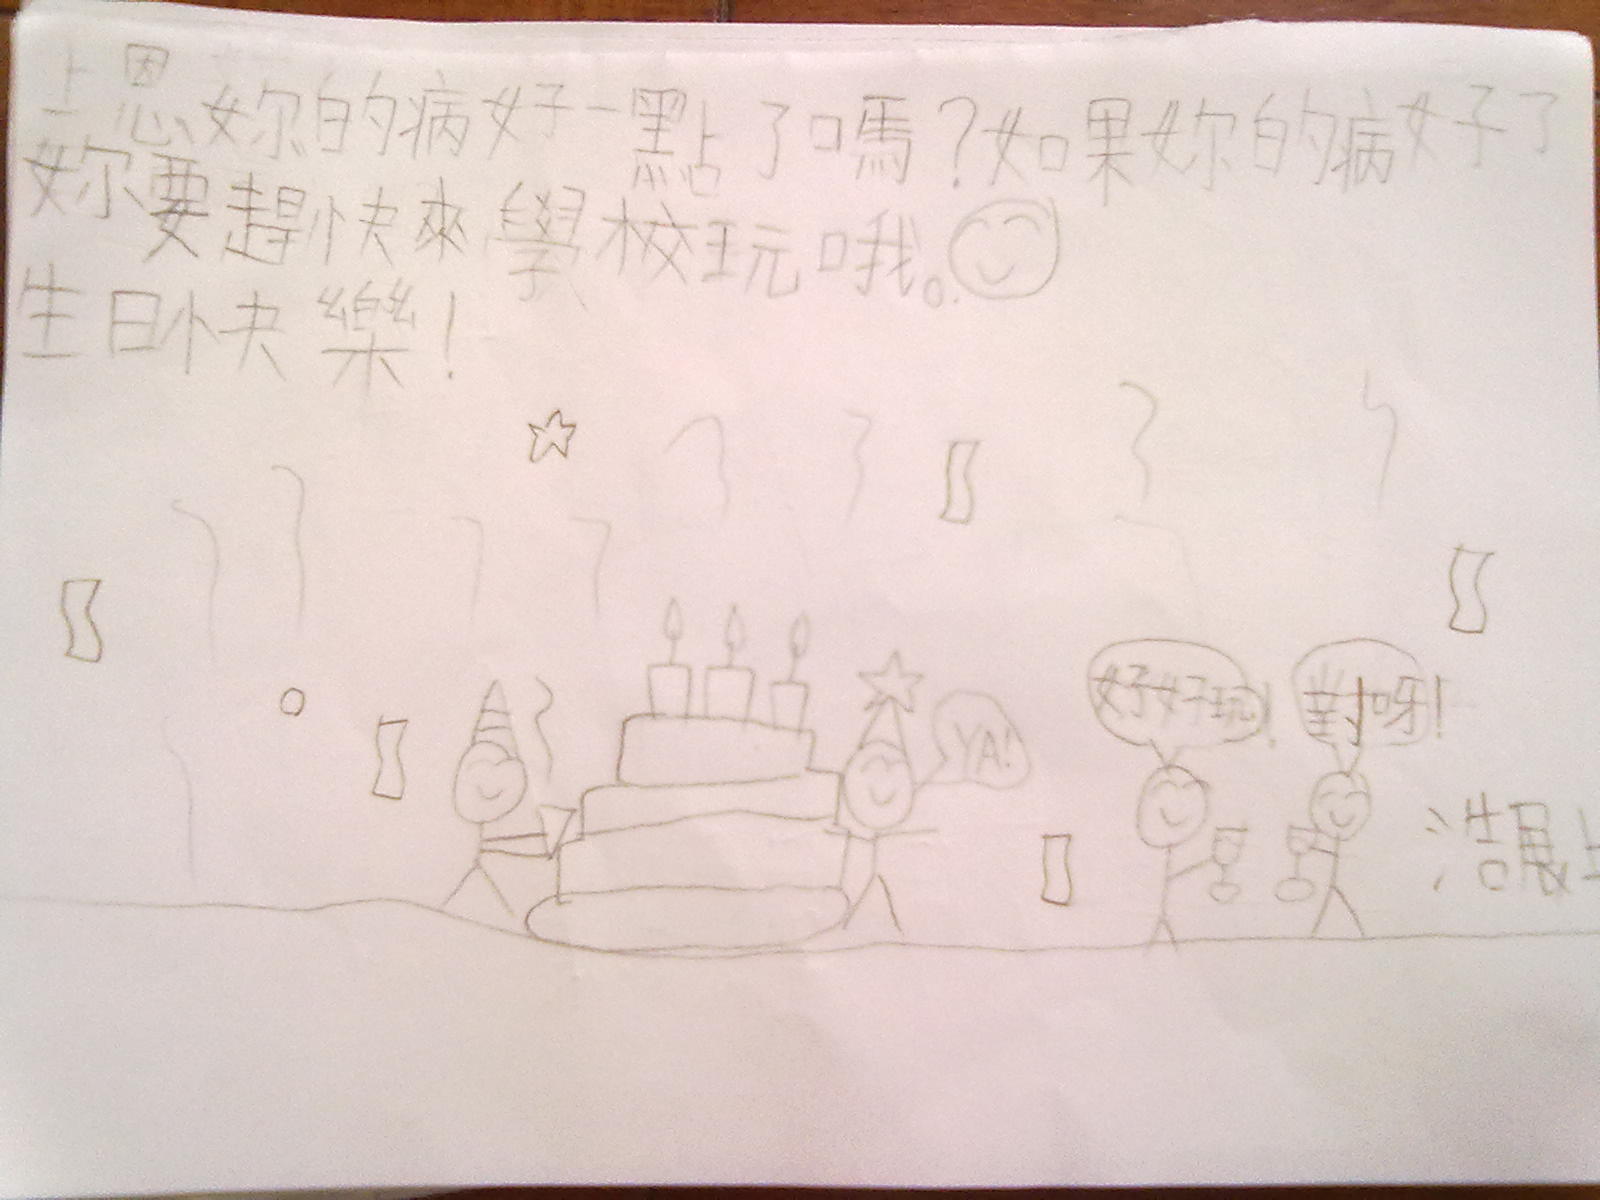 上恩妳的病好一點了嗎？如果妳的病好了
妳要趕快來學校玩哦。
生日快樂！
YA!
好好玩！
對呀！
浩展上